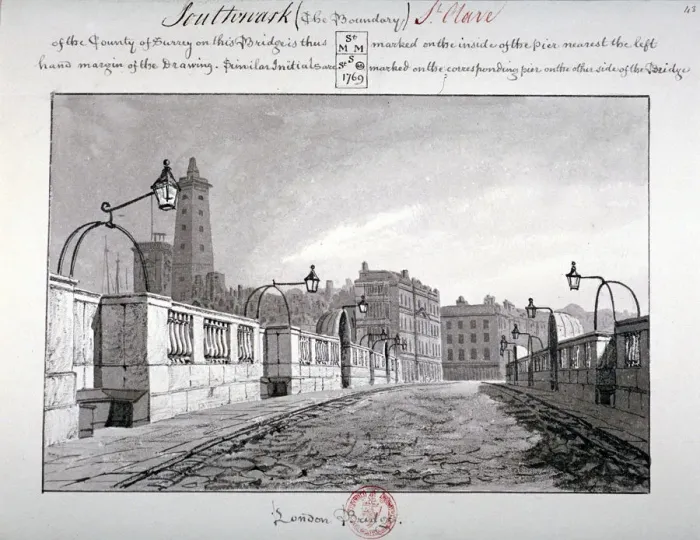 Southwark (The Boundary,) St. Olave
48
of the County of Surrey on this Bridge is thus
St
M M
St S
1769
marked on the inside of the pier nearest the left
hand margin of the Drawing. Similar Initials are marked on the corresponding pier on the other side of the Bridge
London Bridge.